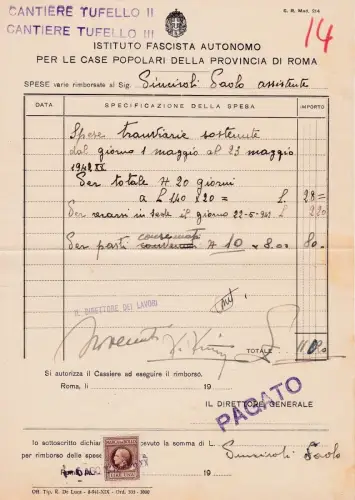 CANTIERE TUFELLO II
CANTIERE TUFELLO III
S. R. Mod. 114
14
ISTITUTO FASCISTA AUTONOMO
PER LE CASE POPOLARI DELLA PROVINCIA DI ROMA
SPESE varie rimborsate al Sig. Paolo assistente
DATA SPECIFICAZIONE DELLA SPESA IMPORTO
Spese tranviarie sostenute
dal giorno 1 maggio al 23 maggio
1942 XX
Per totale N 20 giorni
a £ 1,40 x 20 = £. 28 =
Per recarsi in sede il giorno 22-5-942 £ 2,80
consumati
Per pasti N 10 x 8.00 80.
IL DIRETTORE DEI LAVORI
TOTALE
Si autorizza il Cassiere ad eseguire il rimborso.
Roma, li 19
IL DIRETTORE GENERALE
PAGATO
Io sottoscritto dichiar evuto la somma di L. Paolo
per rimborso delle spese
19
Off. Tip. E. De Luca